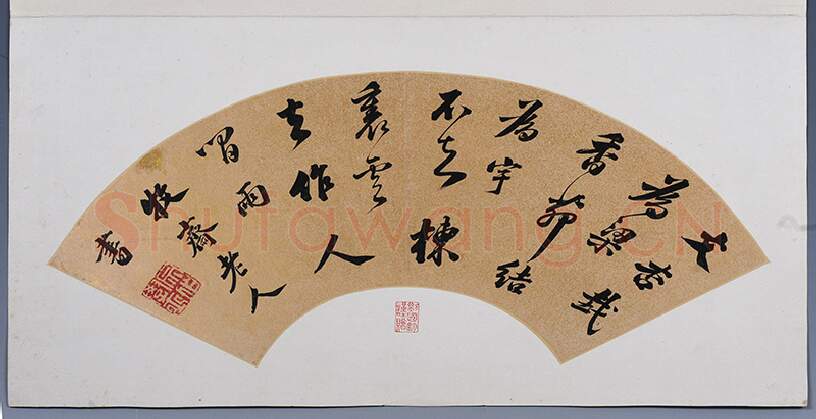 文杏裁
為梁
香茅結
為宇
不知棟
裏雲
去作人
間雨
牧齋老人
書
Shufawang.CN